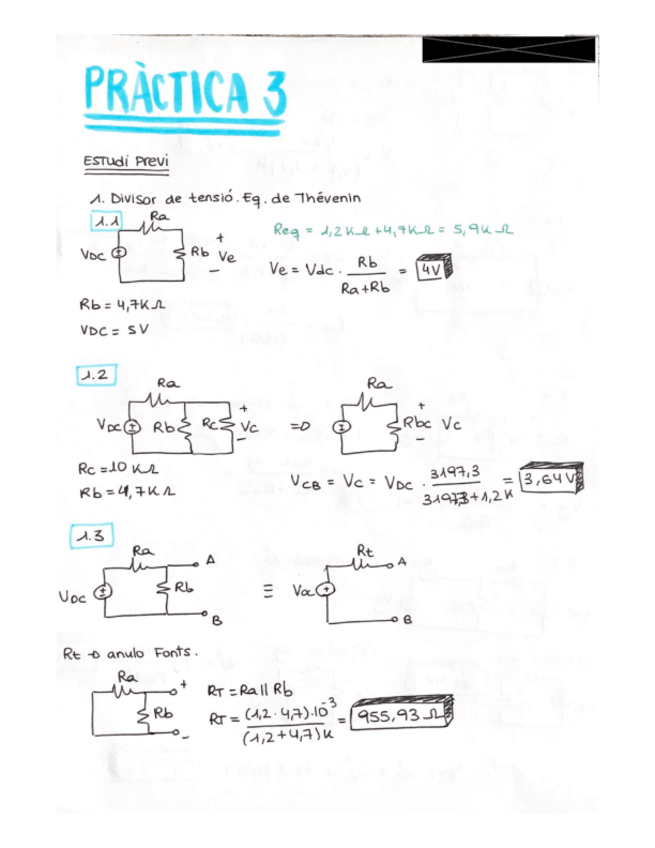 PRÀCTICA 3
ESTUDI PREVI
1. Divisor de tensió. Eq. de Thévenin
1.1
Ra
VDC
Rb
+
Ve
-
Req = 1,2KΩ + 4,7KΩ = 5,9KΩ
Ve = Vdc · Rb / Ra+Rb = 4V
Rb = 4,7KΩ
VDC = 5V
1.2
Ra
VDC
Rb
Rc
+
Vc
-
=D
Ra
+
Rbc
Vc
Rc = 10 KΩ
Rb = 4,7KΩ
VCB = Vc = VDC · 3197,3 / 3197,3+1,2K = 3,64V
1.3
Ra
A
VDC
Rb
B
≡
Rt
A
B
Rt → anulo Fonts.
Ra
+
Rb
-
RT = Ra || Rb
RT = (1,2 · 4,7)·10⁻³ / (1,2+4,7)K = 955,93 Ω